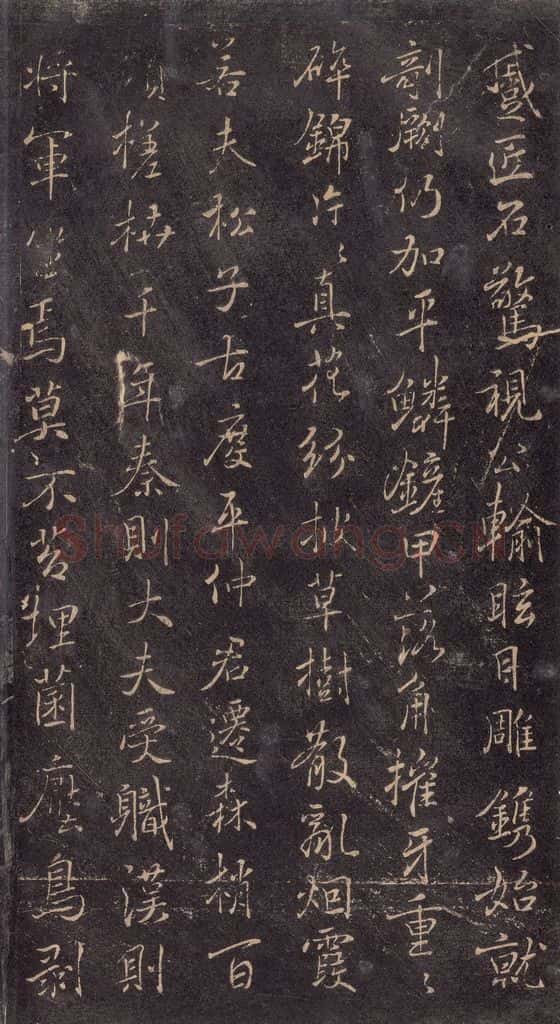 蹙匠石驚視公輸眩目雕鐫始就
剞劂仍加平鱗鏟甲落角摧牙重〻
碎錦片〻真花紛披草樹散亂烟霞
若夫松子古度平仲君遷森梢百
頃槎枿千年秦則大夫受職漢則
將軍坐焉莫不苔埋菌壓鳥剥
Shufawang.cn